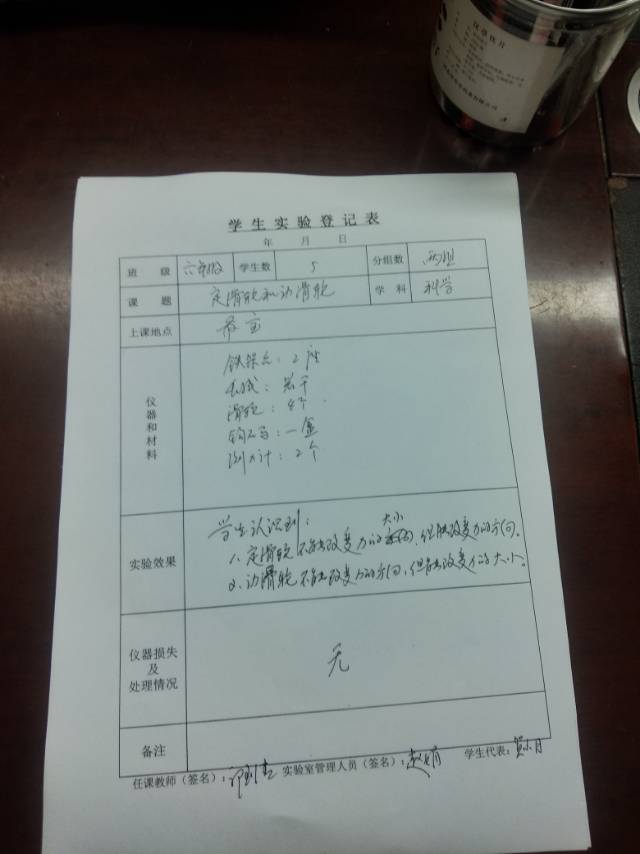 汉草饮片
学生实验登记表
年 月 日
班 级 六年级 学生数 5 分组数 两组
课 题 定滑轮和动滑轮 学 科 科学
上课地点 教室
仪器和材料
铁架台：2座
长线：若干
滑轮：4个
钩码：一盒
测力计：2个
实验效果
学生认识到：
1、定滑轮不能改变力的大小，但能改变力的方向。
2、动滑轮不能改变力的方向，但能改变力的大小。
仪器损失及处理情况
无
备注
任课教师（签名）： 实验室管理人员（签名）：赵娟 学生代表：